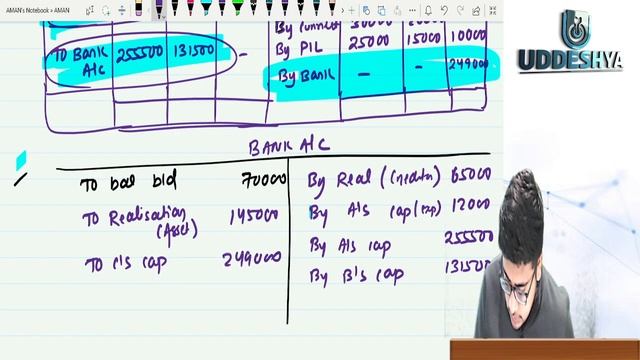 AMAN's Notebook » AMAN
UDDESHYA
30000
By PIL 25000 15000 10000
To Bank A/c 255500 131500 -
By Bank - - 249000
BANK A/C
To bal b/d 70000
By Real (creditor) 65000
To Realisation (Asset) 145000
By A's cap (exp) 12000
To C's cap 249000
By A's cap 255500
By B's cap 131500